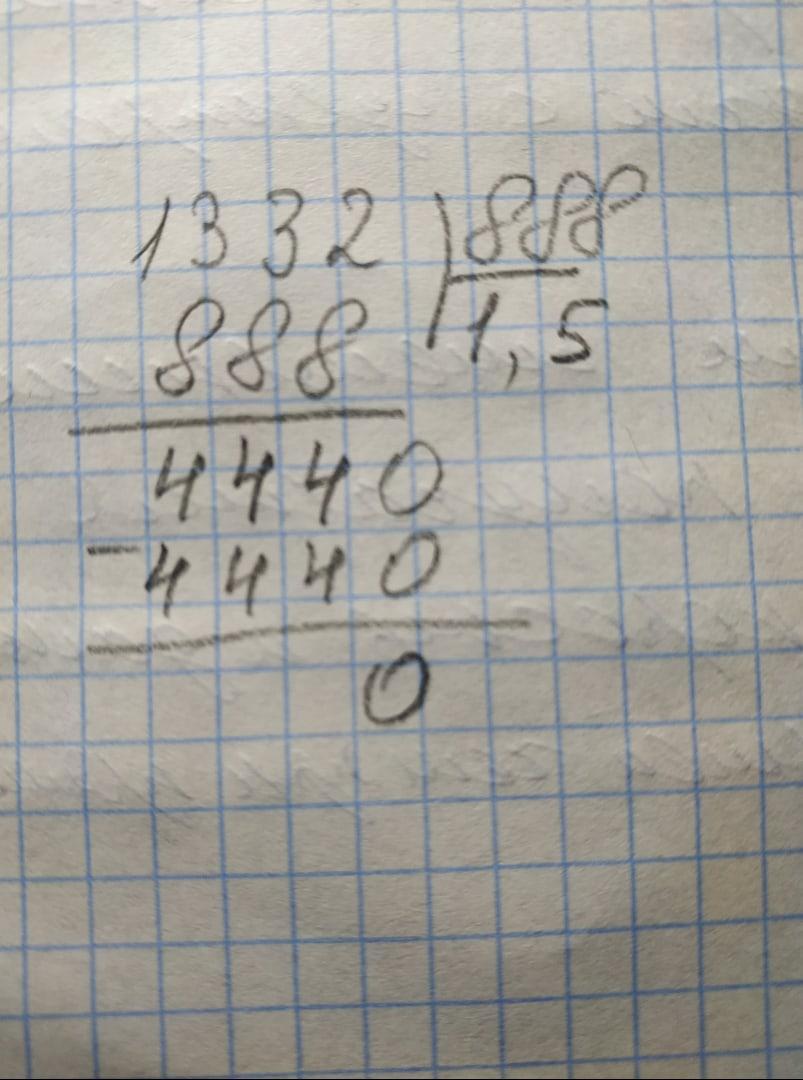 1332 888
888 1,5
4440
- 4440
0